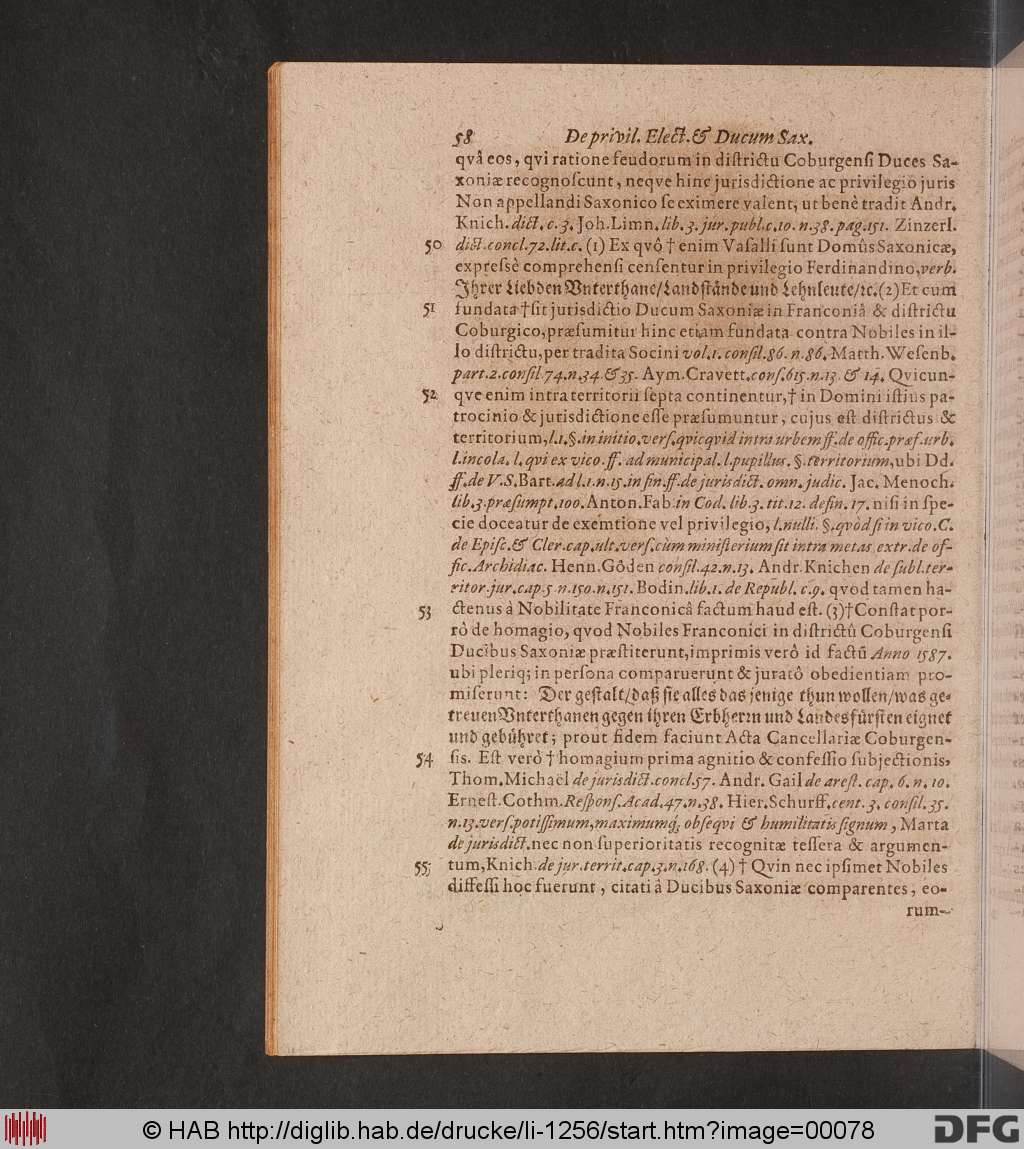 58 De privil. Elect. & Ducum Sax.
qvâ eos, qvi ratione feudorum in diſtrictu Coburgenſi Duces Sa-
xoniæ recognoſcunt, neqve hinc jurisdictione ac privilegiô juris
Non appellandi Saxonico ſe eximere valent, ut benè tradit Andr.
Knich. dict. c. 3. Joh. Limn. lib. 3. jur. publ. c. 10. n. 38. pag. 151. Zinzerl.
50 dict. concl. 72. lit. c. (1) Ex qvô † enim Vaſalli ſunt Domûs Saxonicæ,
expreſsè comprehenſi cenſentur in privilegio Ferdinandino, verb.
Ihrer Liebden Vnterthane/Landſtände und Lehnleute/ꝛc. (2) Et cum
51 fundata † ſit jurisdictio Ducum Saxoniæ in Franconiâ & diſtrictu
Coburgico, præſumitur hinc etiam fundata contra Nobiles in il-
lo diſtrictu, per tradita Socini vol. 1. conſil. 86. n. 86. Matth. Weſenb.
part. 2. conſil. 74. n. 34. & 35. Aym. Cravett. conſ. 615. n. 13. & 14. Qvicun-
52 qve enim intra territorii ſepta continentur, † in Domini iſtius pa-
trocinio & jurisdictione eſſe præſumuntur, cujus eſt diſtrictus &
territorium, l. 1. §. in initio. verſ. qvicqvid intra urbem ff. de offic. præf. urb.
l. incola. l. qvi ex vico. ff. ad municipal. l. pupillus. §. territorium, ubi Dd.
ff. de V. S. Bart. ad l. 1. n. 15. in fin. ff. de jurisdict. omn. judic. Jac. Menoch.
lib. 3. præſumpt. 100. Anton. Fab. in Cod. lib. 3. tit. 12. defin. 17. niſi in ſpe-
cie doceatur de exemtione vel privilegio, l. nulli. §. qvòd ſi in vico. C.
de Epiſc. & Cler. cap. ult. verſ. cùm miniſterium ſit intra metas extr. de of-
fic. Archidiac. Henn. Göden conſil. 42. n. 13. Andr. Knichen de ſubl. ter-
ritor. jur. cap. 5. n. 150. n. 151. Bodin. lib. 1. de Republ. c. 9. qvod tamen ha-
53 ctenus à Nobilitate Franconicâ factum haud eſt. (3) † Conſtat por-
rò de homagio, qvod Nobiles Franconici in diſtrictû Coburgenſi
Ducibus Saxoniæ præſtiterunt, imprimis verò id factũ Anno 1587.
ubi pleriq; in perſona comparuerunt & juratô obedientiam pro-
miſerunt: Der geſtalt/daß ſie alles das jenige thun wollen/was ge-
treuen Vnterthanen gegen ihren Erbherrn und Landesfürſten eignet
und gebühret; prout fidem faciunt Acta Cancellariæ Coburgen-
54 ſis. Eſt verò † homagium prima agnitio & confeſſio ſubjectionis,
Thom. Michaël de jurisdict. concl. 57. Andr. Gail de areſt. cap. 6. n. 10.
Erneſt. Cothm. Reſponſ. Acad. 47. n. 38. Hier. Schurff. cent. 3. conſil. 35.
n. 13. verſ. potiſſimum, maximumq́; obſeqvi & humilitatis ſignum, Marta
de jurisdict. nec non ſuperioritatis recognitæ teſſera & argumen-
55 tum, Knich. de jur. territ. cap. 3. n. 168. (4) † Qvin nec ipſimet Nobiles
diffeſſi hoc fuerunt, citati â Ducibus Saxoniæ comparentes, eo-
rum-
© HAB http://diglib.hab.de/drucke/li-1256/start.htm?image=00078
DFG